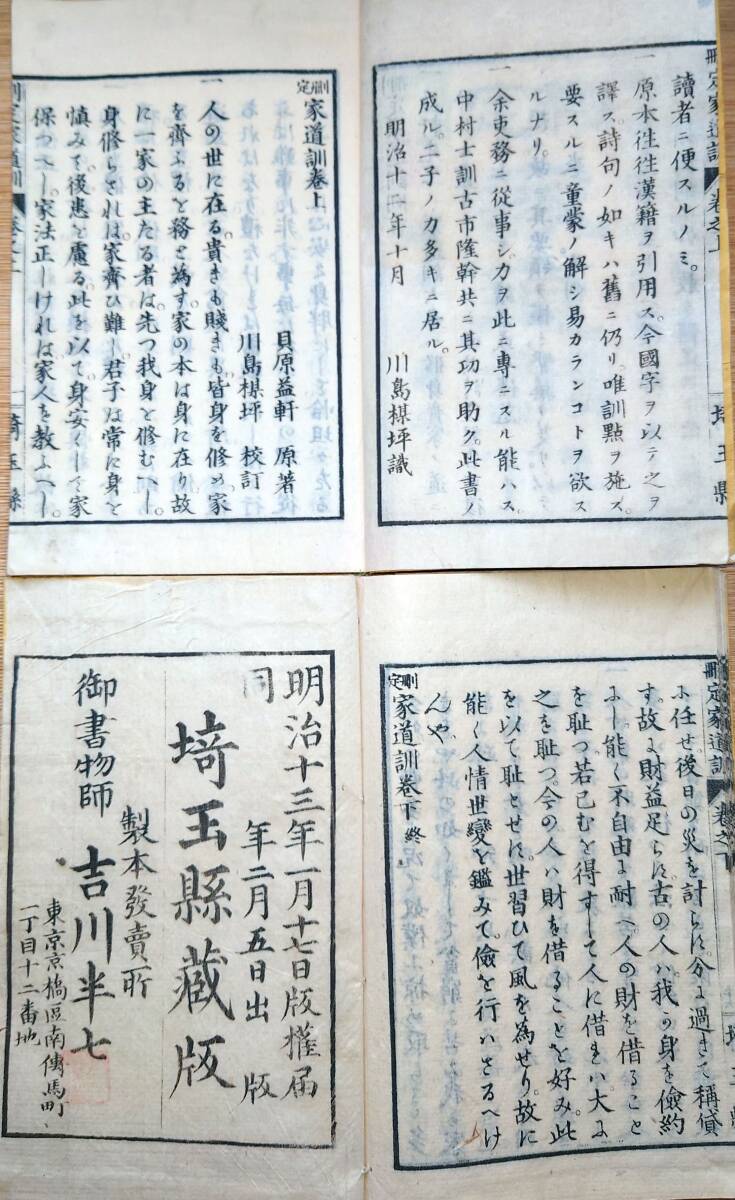 刪定家道訓
卷之上
埼玉縣
讀者ニ便スルノミ。
一 原本往往漢籍ヲ引用ス。今國字ヲ以テ之ヲ
譯ス。詩句ノ如キハ舊ニ仍リ。唯訓點ヲ施ス。
要スルニ童蒙ノ解シ易カランコトヲ欲ス
ルナリ。
一 余吏務ニ從事シ力ヲ此ニ專ニスル能ハス。
中村士訓古市隆幹共ニ其功ヲ助ク。此書ノ
成ル。二子ノ力多キニ居ル。
明治十二年十月
川島楳坪識
刪定家道訓卷上
貝原益軒 原著
川島楳坪 校訂
一 人の世に在る。貴きも賤きも。皆身を修め。家
を齊ふるを務と為す家の本は身に在り故
に一家の主たる者は。先つ我身を修むへし。
身修らされは。家齊ひ難し。君子は常に身を
慎みて。後患を慮る。此を以て。身安くして家
保つへし。家法正しけれは。家人を教ふへし。
刪定家道訓
卷之上
埼玉縣
刪定家道訓
卷之下
埼玉縣
に任せ。後日の災を計らす。分に過きて稱貸
す。故に財益足らす。古の人ハ。我か身を儉約
にし。能く不自由に耐へ。人の財を借ること
を耻つ。若已むを得すして人に借れハ。大に
之を耻つ。今の人ハ財を借ることを好み。此
を以て耻とせす。世習ひて風を為せり。故に
能く人情世變を鑑みて。儉を行ハさるへけ
んや。
刪定家道訓卷下 終
明治十三年一月十七日版權届
同 年二月五日出版
埼玉縣藏版
製本發賣所
御書物師 吉川半七
東京京橋區南傳馬町
一丁目十二番地